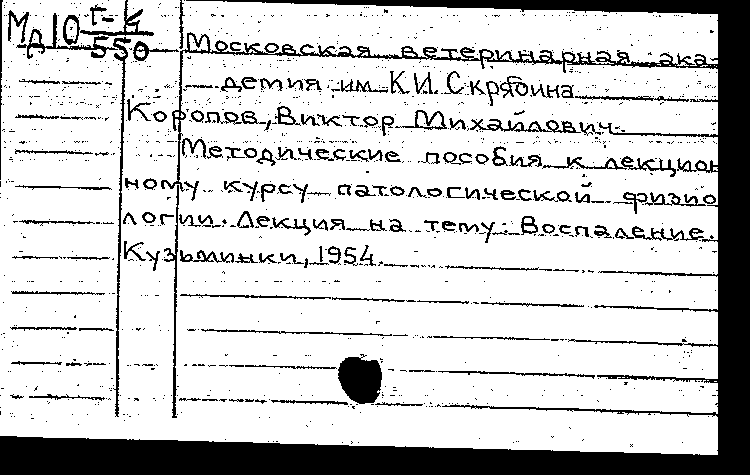 Мд10 Г-4/550
Московская ветеринарная ака-
демия им. К.И. Скрябина
Коропов, Виктор Михайлович.
Методические пособия к лекцион
ному курсу патологической физио
логии. Лекция на тему: Воспаление.
Кузьминки, 1954.